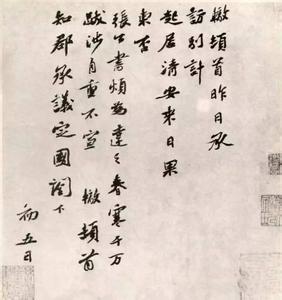 轍頓首昨日承
訪別計
起居清安來日果
東否
張公書煩為達之春寒千万
跋涉自重不宣 轍頓首
知郡承議定國閣下
初五日